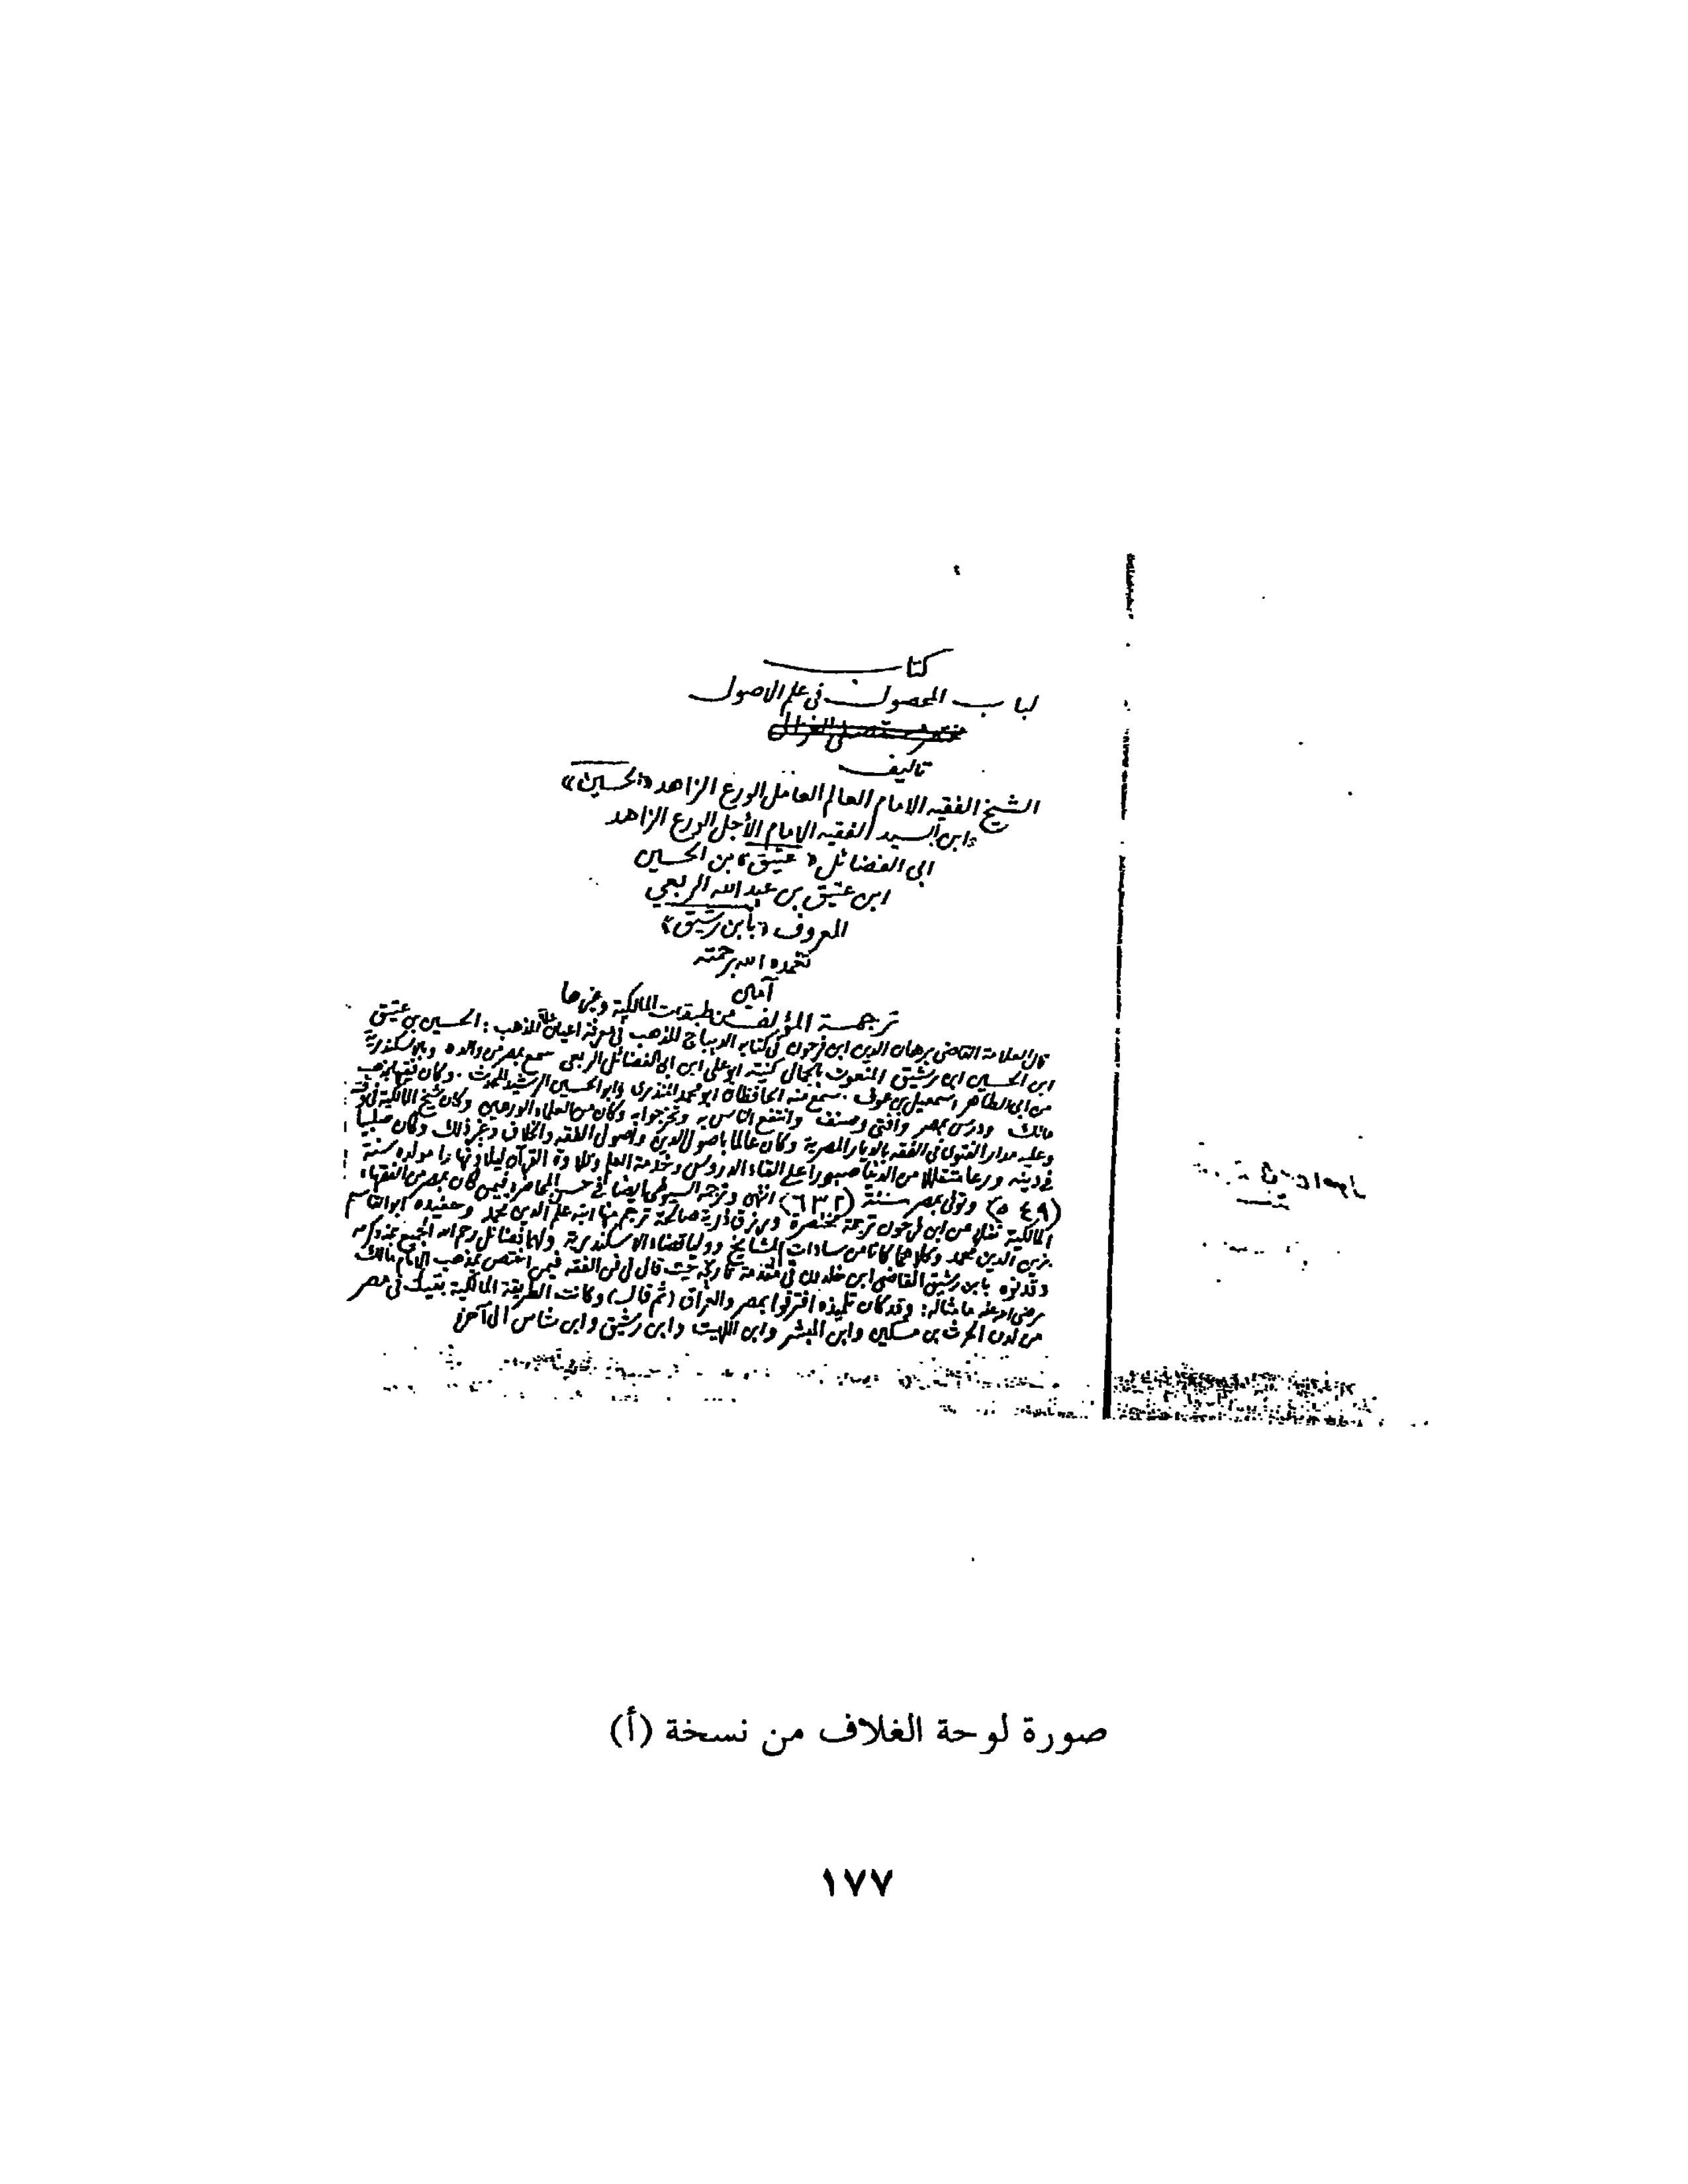 كتاب
لباب المحصول في علم الاصول
تاليف
الشيخ الفقيه الامام العالم العامل الورع الزاهد «الحسين»
ابن السيد الفقيه الامام الأجل الورع الزاهد
ابي الفضائل «عتيق» بن الحسين
ابن عتيق بن عبد الله الربعي
المعروف «بابن رشيق»
تغمده الله برحمته
آمين
ترجمة المؤلف من طبقات المالكية وغيرها
قال العلامة القاضي برهان الدين ابن فرحون في كتابه الديباج المذهب في معرفة اعيان علماء المذهب: الحسين بن عتيق
ابن الحسين ابن رشيق المنعوت بالجمال كنيته ابو علي ابن ابي الفضائل الربعي سمع بمصر من والده وبالاسكندرية
من ابي الطاهر اسمعيل بن عوف. سمع منه الحافظان ابو محمد المنذري وابو الحسين الرشيد المحدث. وكان فقيها بمذهب
مالك ودرس بمصر وافتى وصنف وانتفع الناس به وتخرجوا به وكان من العلماء الورعين وكان شيخ المالكية في وقته
وعليه مدار الفتوى في الفقه بالديار المصرية وكان عالما باصول الدين واصول الفقه والخلاف وغير ذلك وكان صليبا
في دينه ورعا متقللا من الدنيا صبورا على القاء الدروس وخدمة العلم وتلاوة القرآن ليلا ونهارا مولده سنة
(٥٤٩) وتوفى بمصر سنة (٦٣٢) انتهى وترجمه السيوطي ايضا في حسن المحاضرة فيمن كان بمصر من الفقهاء
المالكية نقلا عن ابن فرحون ترجمة مختصرة ورزق ذرية صالحة ترجم منها ابنه علم الدين محمد وحفيده ابو القاسم
زين الدين محمد وكلاهما كانا من سادات المشايخ ووليا قضاء الاسكندرية ولهما فضائل رحم الله الجميع بمنه وكرمه
وقد نوه بابن رشيق القاضي ابن خلدون في مقدمة تاريخه حيث قال في فن الفقه فيمن اختص بمذهب الامام مالك
رضي الله عنه ما مثاله: وقد كان تلميذه افترقوا بمصر والعراق (ثم قال) وكانت الطريقة المالكية بقيت في مصر
من لدن الحرث بن مسكين وابن المبشر وابن اللهيت وابن رشيق وابن شاس الى آخره
صورة لوحة الغلاف من نسخة (أ)
١٧٧